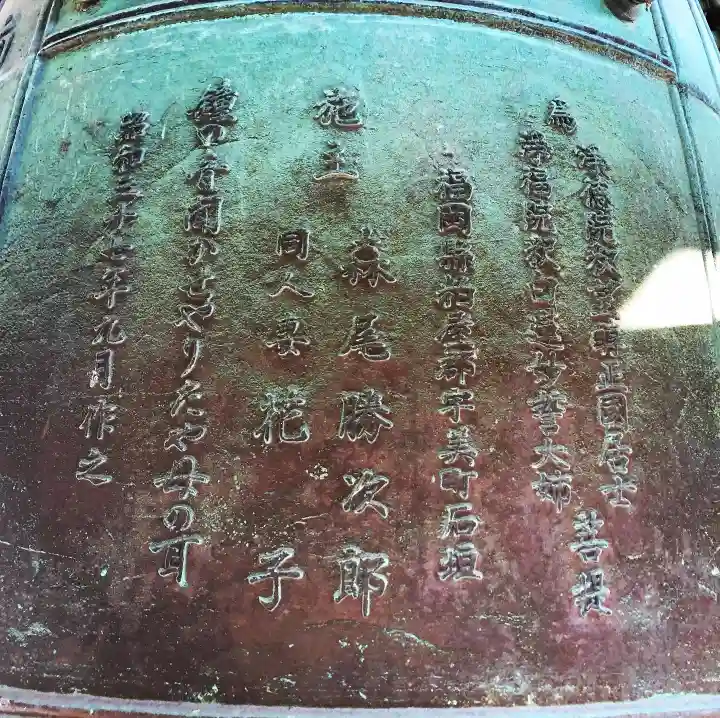 為
院 正國居士
福院 妙誓大姉
菩提
福岡縣粕屋郡宇美町石垣
施主
森尾勝次郎
同人妻 花子
鐘の音聞かせやりたや母の耳
昭和三十七年九月作之